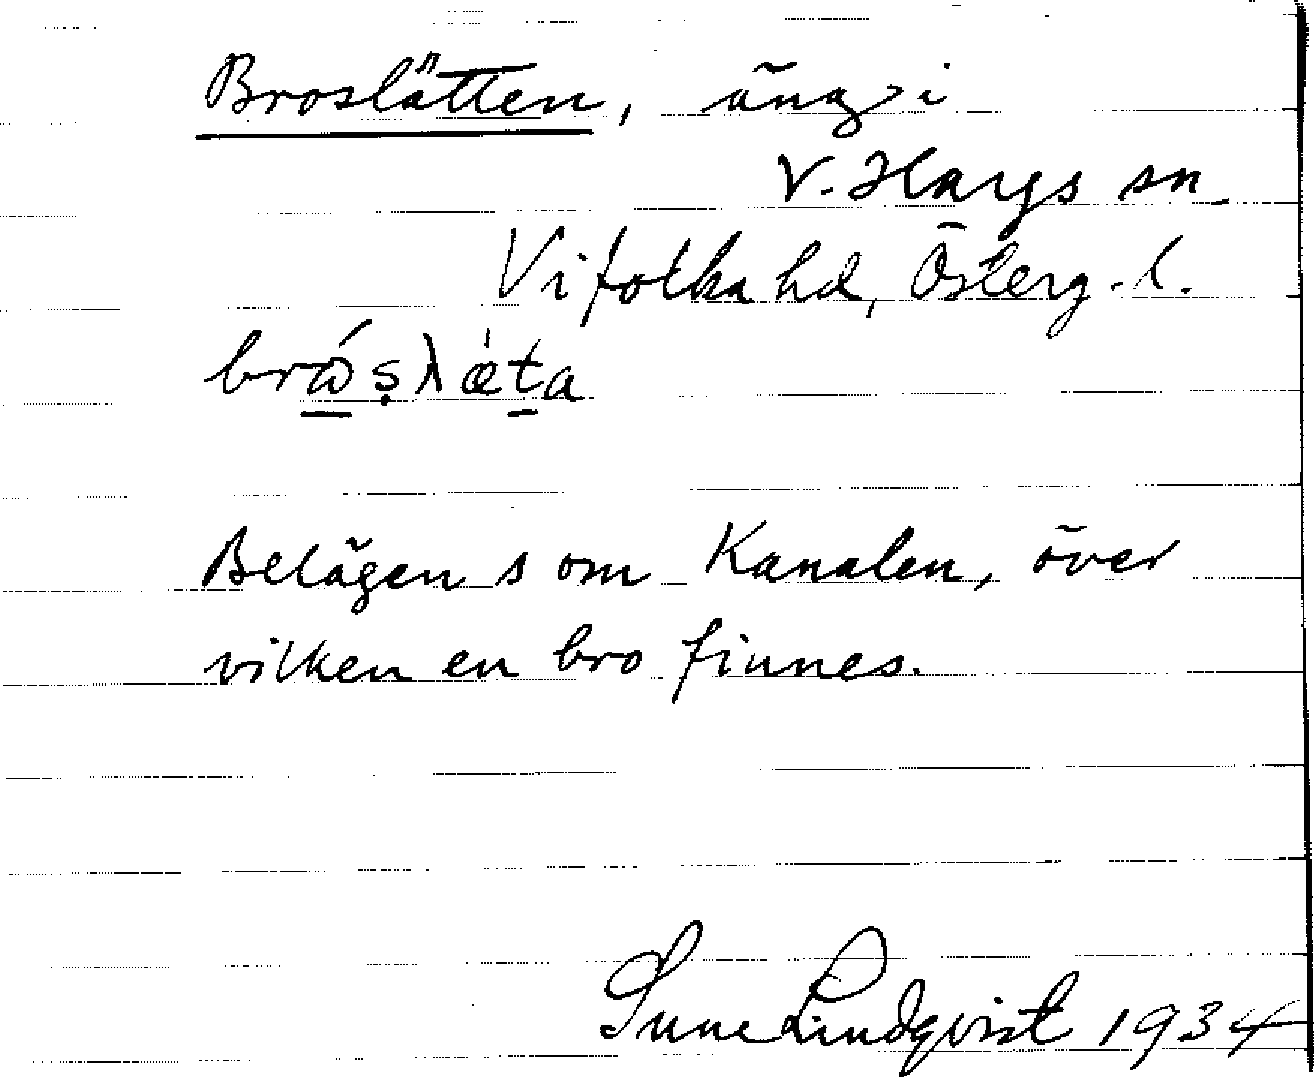 Broslätten, äng i
V. Hargs sn.
Vifolka hd, Österg. l.
Belägen s om Kanalen, över
vilken en bro finnes.
Sune Lindqvist 1934